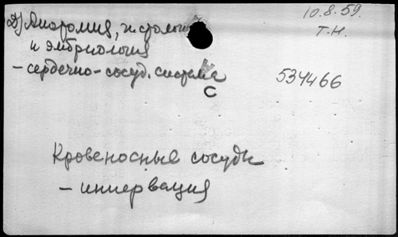 Д) Анатомия, гистология 10.8.59.
и эмбриология Т.Н.
– сердечно-сосуд. система 534466
С
Кровеносные сосуды
– иннервация